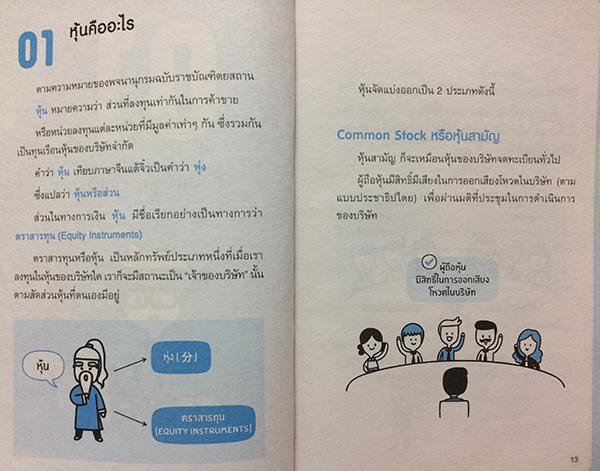 01 หุ้นคืออะไร
ตามความหมายของพจนานุกรมฉบับราชบัณฑิตยสถาน
หุ้น หมายความว่า ส่วนที่ลงทุนเท่ากันในการค้าขาย
หรือหน่วยลงทุนแต่ละหน่วยที่มีมูลค่าเท่าๆ กัน ซึ่งรวมกัน
เป็นทุนเรือนหุ้นของบริษัทจำกัด
คำว่า หุ้น เทียบภาษาจีนแต้จิ๋วเป็นคำว่า หุ่ง
ซึ่งแปลว่า หุ้นหรือส่วน
ส่วนในทางการเงิน หุ้น มีชื่อเรียกอย่างเป็นทางการว่า
ตราสารทุน (Equity Instruments)
ตราสารทุนหรือหุ้น เป็นหลักทรัพย์ประเภทหนึ่งที่เมื่อเรา
ลงทุนในหุ้นของบริษัทใด เราก็จะมีสถานะเป็น "เจ้าของบริษัท" นั้น
ตามสัดส่วนหุ้นที่ตนเองมีอยู่
หุ้น
หุ่ง (分)
ตราสารทุน
(EQUITY INSTRUMENTS)
หุ้นจัดแบ่งออกเป็น 2 ประเภทดังนี้
Common Stock หรือหุ้นสามัญ
หุ้นสามัญ ก็จะเหมือนหุ้นของบริษัทจดทะเบียนทั่วไป
ผู้ถือหุ้นมีสิทธิ์มีเสียงในการออกเสียงโหวตในบริษัท (ตาม
แบบประชาธิปไตย) เพื่อผ่านมติที่ประชุมในการดำเนินการ
ของบริษัท
ผู้ถือหุ้น
มีสิทธิในการออกเสียง
โหวตในบริษัท
13